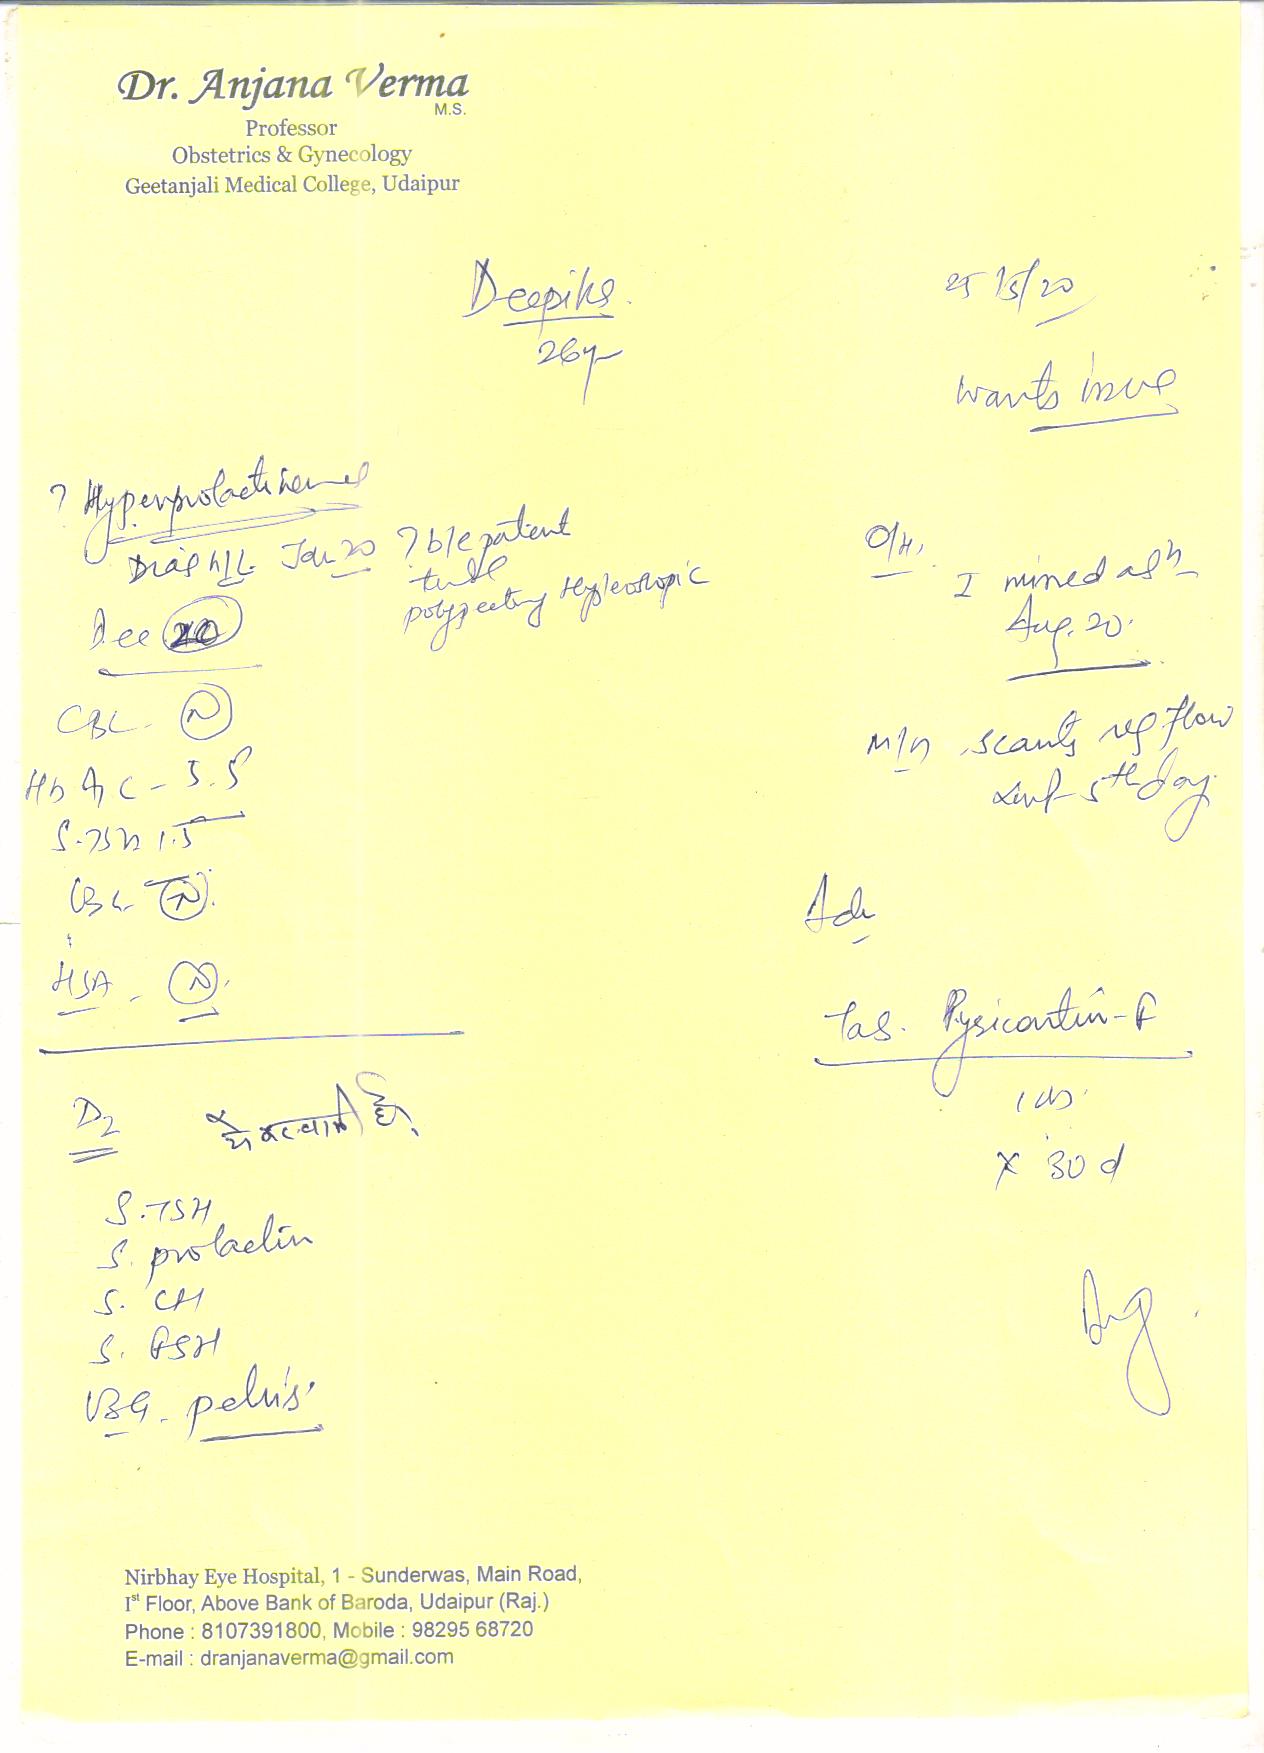 Dr. Anjana Verma
M.S.
Professor
Obstetrics & Gynecology
Geetanjali Medical College, Udaipur
Deepika
26y
25/5/20
wants issue
? Hyperprolactinemia
Jan 20 ? b/l patent
tube
Hysteroscopic
Dec 20
CBC - N
HbA1C - 5.5
S.TSH 1.5
CBC N
HSA - N
O/H,
I missed
Aug. 20.
M/H scanty reg flow
5th day
Adv
Tab. Pysicontin-F
1 OD
x 30 d
D2 ये करवानी है
S.TSH
S. prolactin
S. LH
S. FSH
USG - pelvis
Nirbhay Eye Hospital, 1 - Sunderwas, Main Road,
Ist Floor, Above Bank of Baroda, Udaipur (Raj.)
Phone : 8107391800, Mobile : 98295 68720
E-mail : dranjanaverma@gmail.com